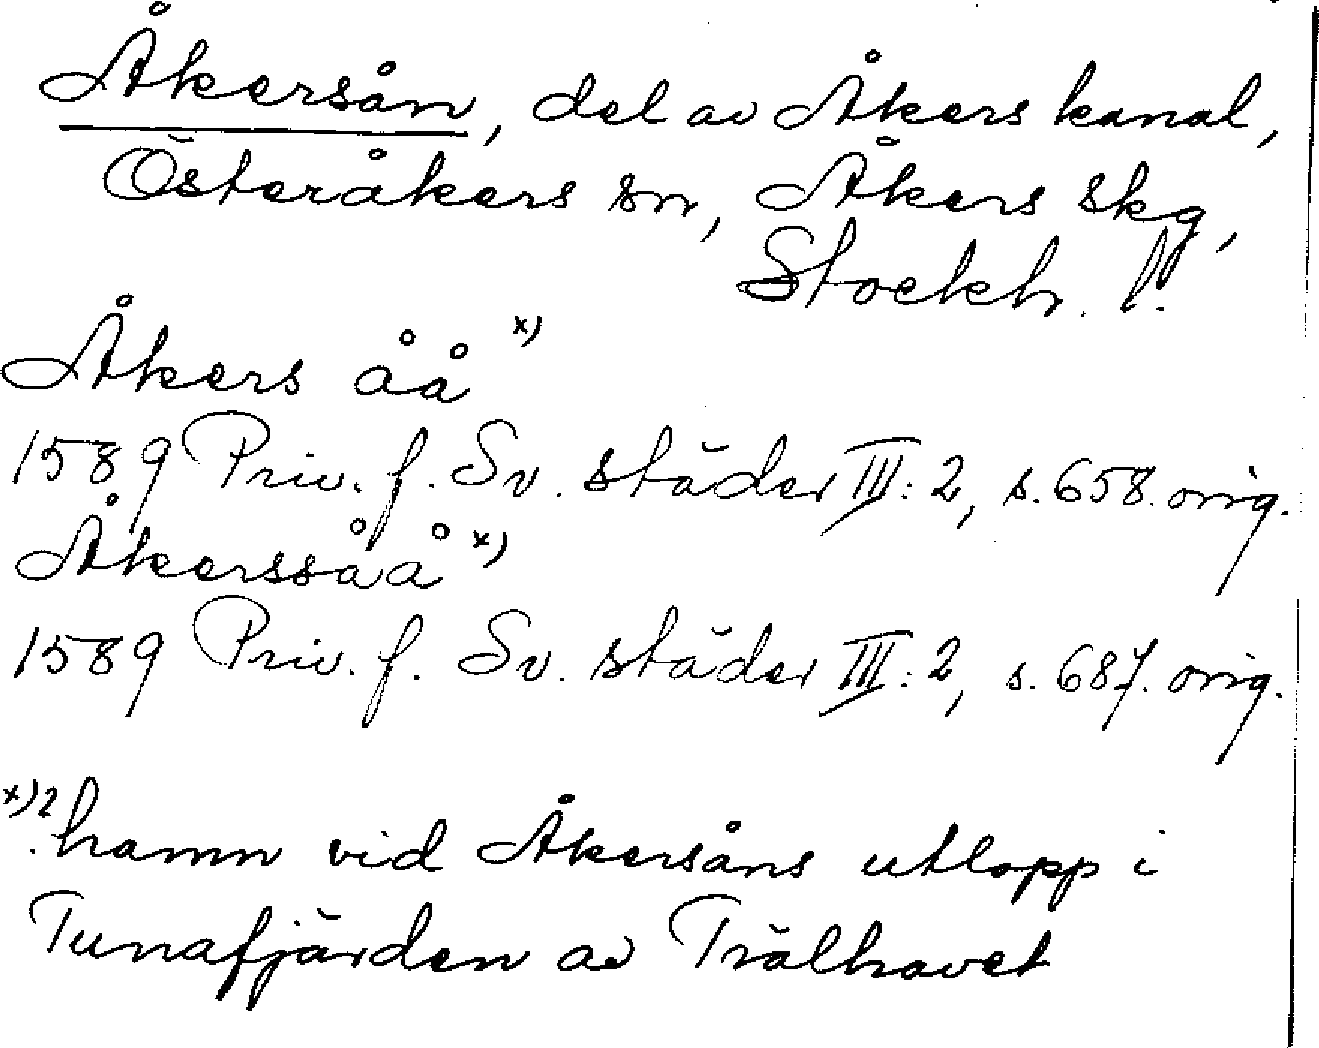 Åkersån, del av Åkers kanal,
Österåkers sn, Åkers skg,
Stockh. l.
Åkers åå x)
1589 Priv. f. Sv. städer III: 2, s. 658. orig.
Åkerssåå x)
1589 Priv. f. Sv. städer III: 2, s. 687. orig.
x) ? hamn vid Åkersåns utlopp i
Tunafjärden av Trälhavet